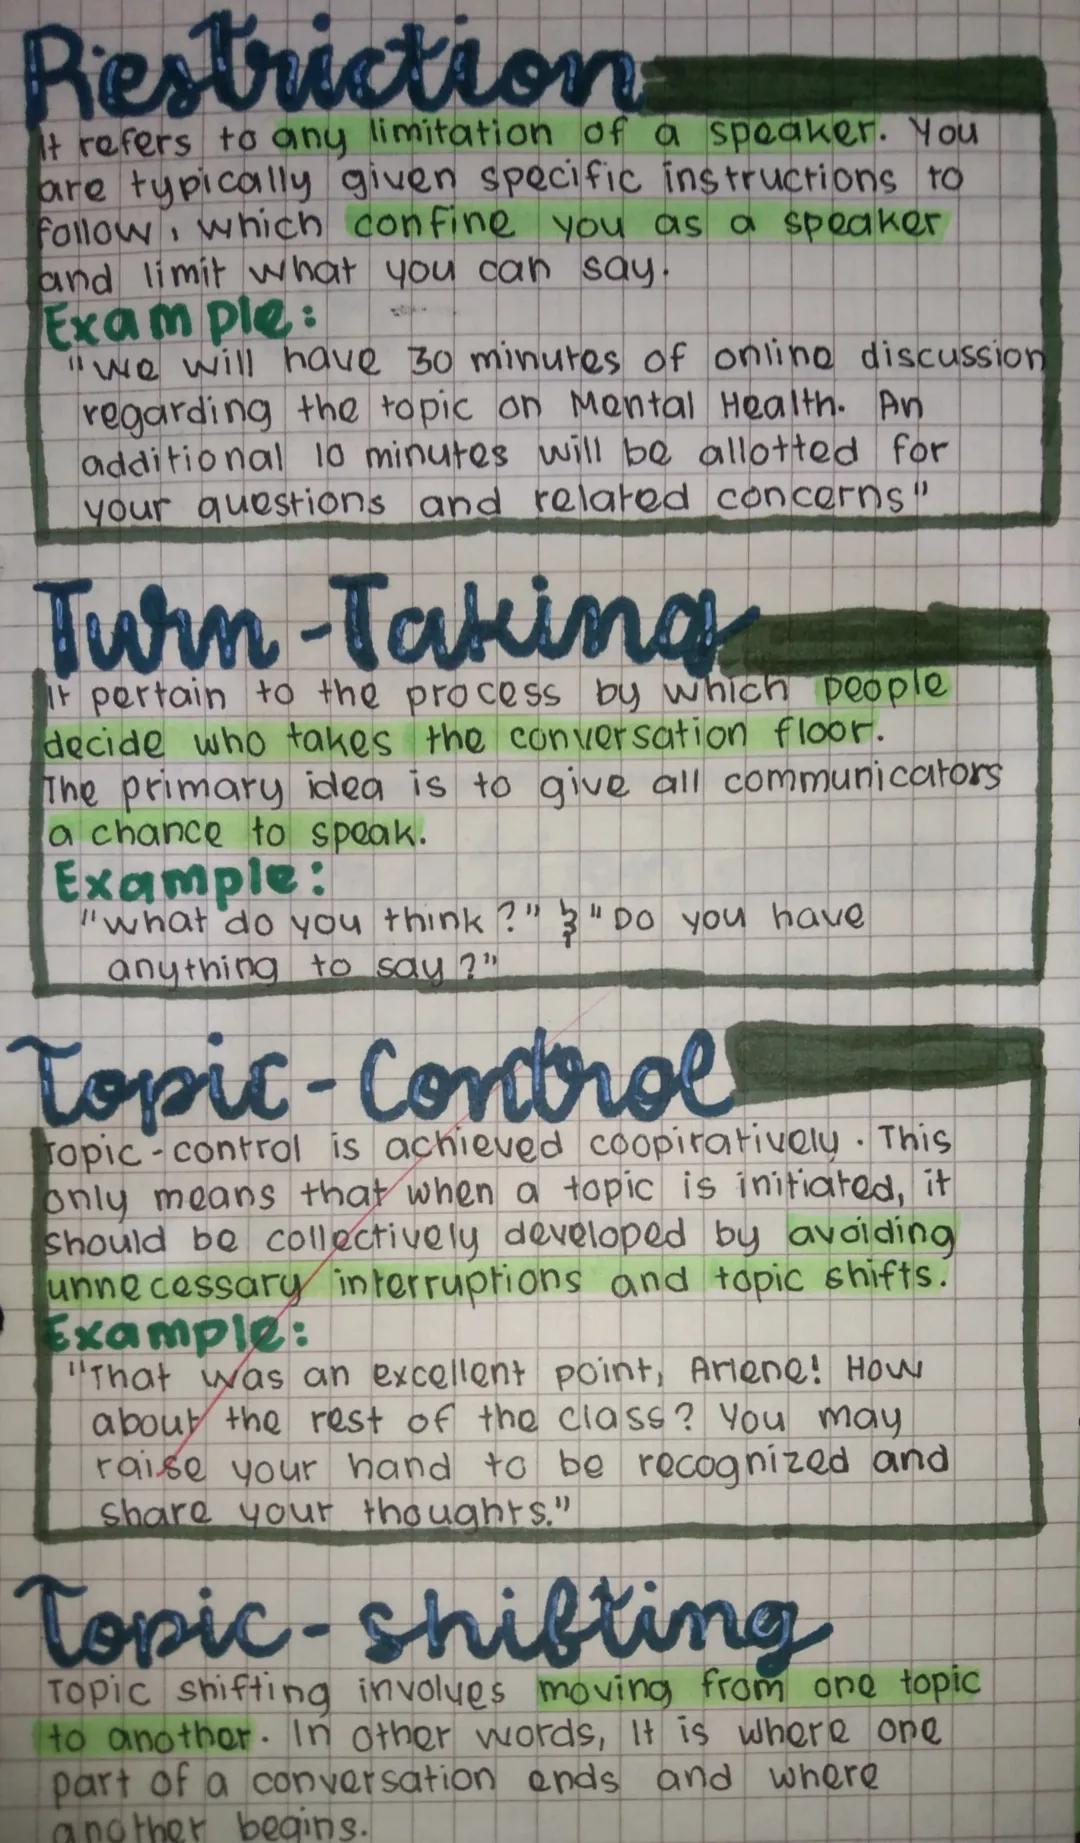 Restriction
It refers to any limitation of a speaker. You
are typically given specific instructions to
follow, which confine you as a speaker
and limit what you can say.
Example:
"We will have 30 minutes of online discussion
regarding the topic on Mental Health. An
additional 10 minutes will be allotted for
your questions and related concerns"
Turn-Taking
It pertain to the process by which people
decide who takes the conversation floor.
The primary idea is to give all communicators
a chance to speak.
Example:
"what do you think?" & "Do you have
anything to say?"
Topic-Control
Topic-control is achieved coopiratively. This
only means that when a topic is initiated, it
should be collectively developed by avoiding
unnecessary interruptions and topic shifts.
Example:
"That was an excellent point, Arlene! How
about the rest of the class? You may
raise your hand to be recognized and
share your thoughts."
Topic-shifting
Topic shifting involves moving from one topic
to another. In other words, It is where one
part of a conversation ends and where
another begins.